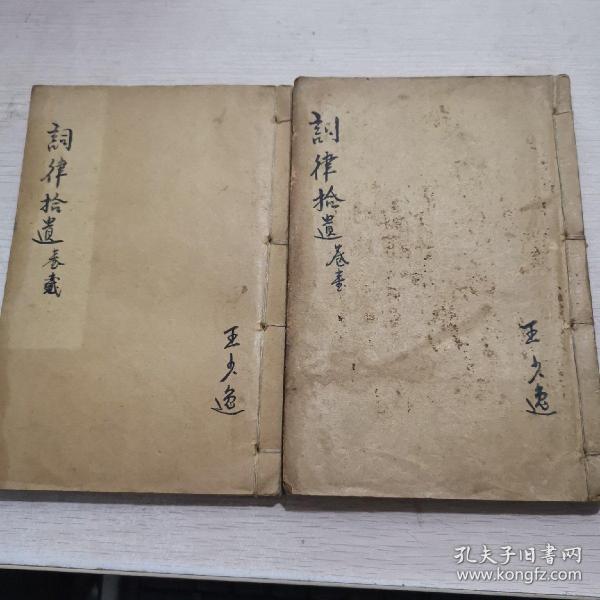 詞律拾遺卷貳
王少逸
詞律拾遺卷壹
王少逸
孔夫子旧书网
www.kongfz.com